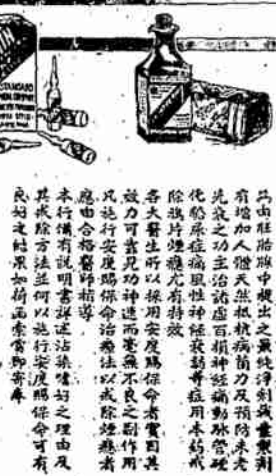 STANDARD
為由胚胎腺中提出之最純淨劑
有增加人體天然抵抗病菌力及預防未老
先衰之功主治諸虛百損神經痛動脈管硬
化糖尿症痛風性神經衰弱等症用本药戒
除鴉片煙癮尤有特效
各大醫生所以採用安度賜保命者實因其
效力可靠見功神速而毫無不良之副作用
凡施行安度賜保命治療法以戒除煙癮者
應由合格醫師指導
本行備有説明書詳述沾染嗜好之理由及
其戒除方法並何以施行安度賜保命可有
良好之結果如荷函索當即寄奉